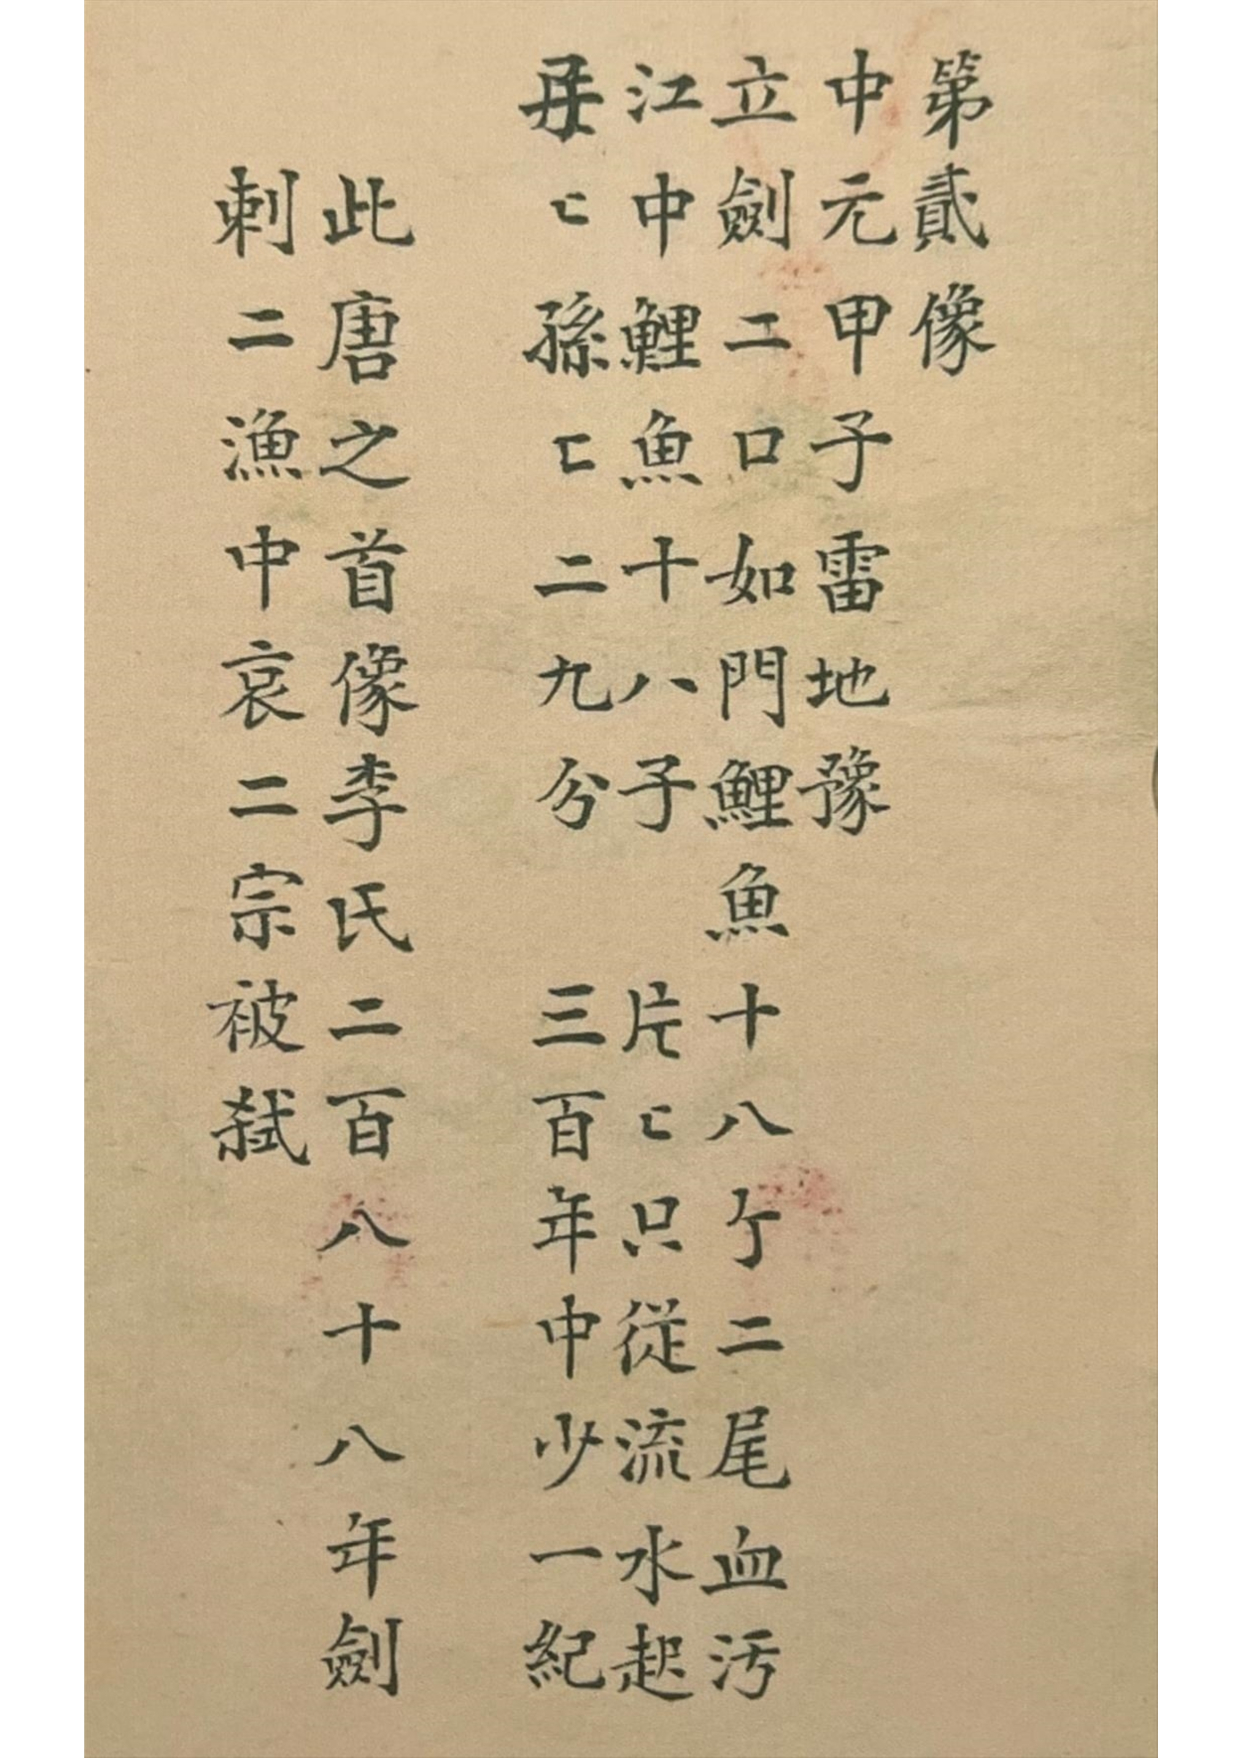 第貳像
中元甲子雷地豫
立劍二口如門鯉魚十八个二尾血污
江中鯉魚十八子 片〻只從流水起
〻孫〻二九分 三百年中少一紀
此唐之首像李氏二百八十八年劍
刺二漁中哀二宗被弒